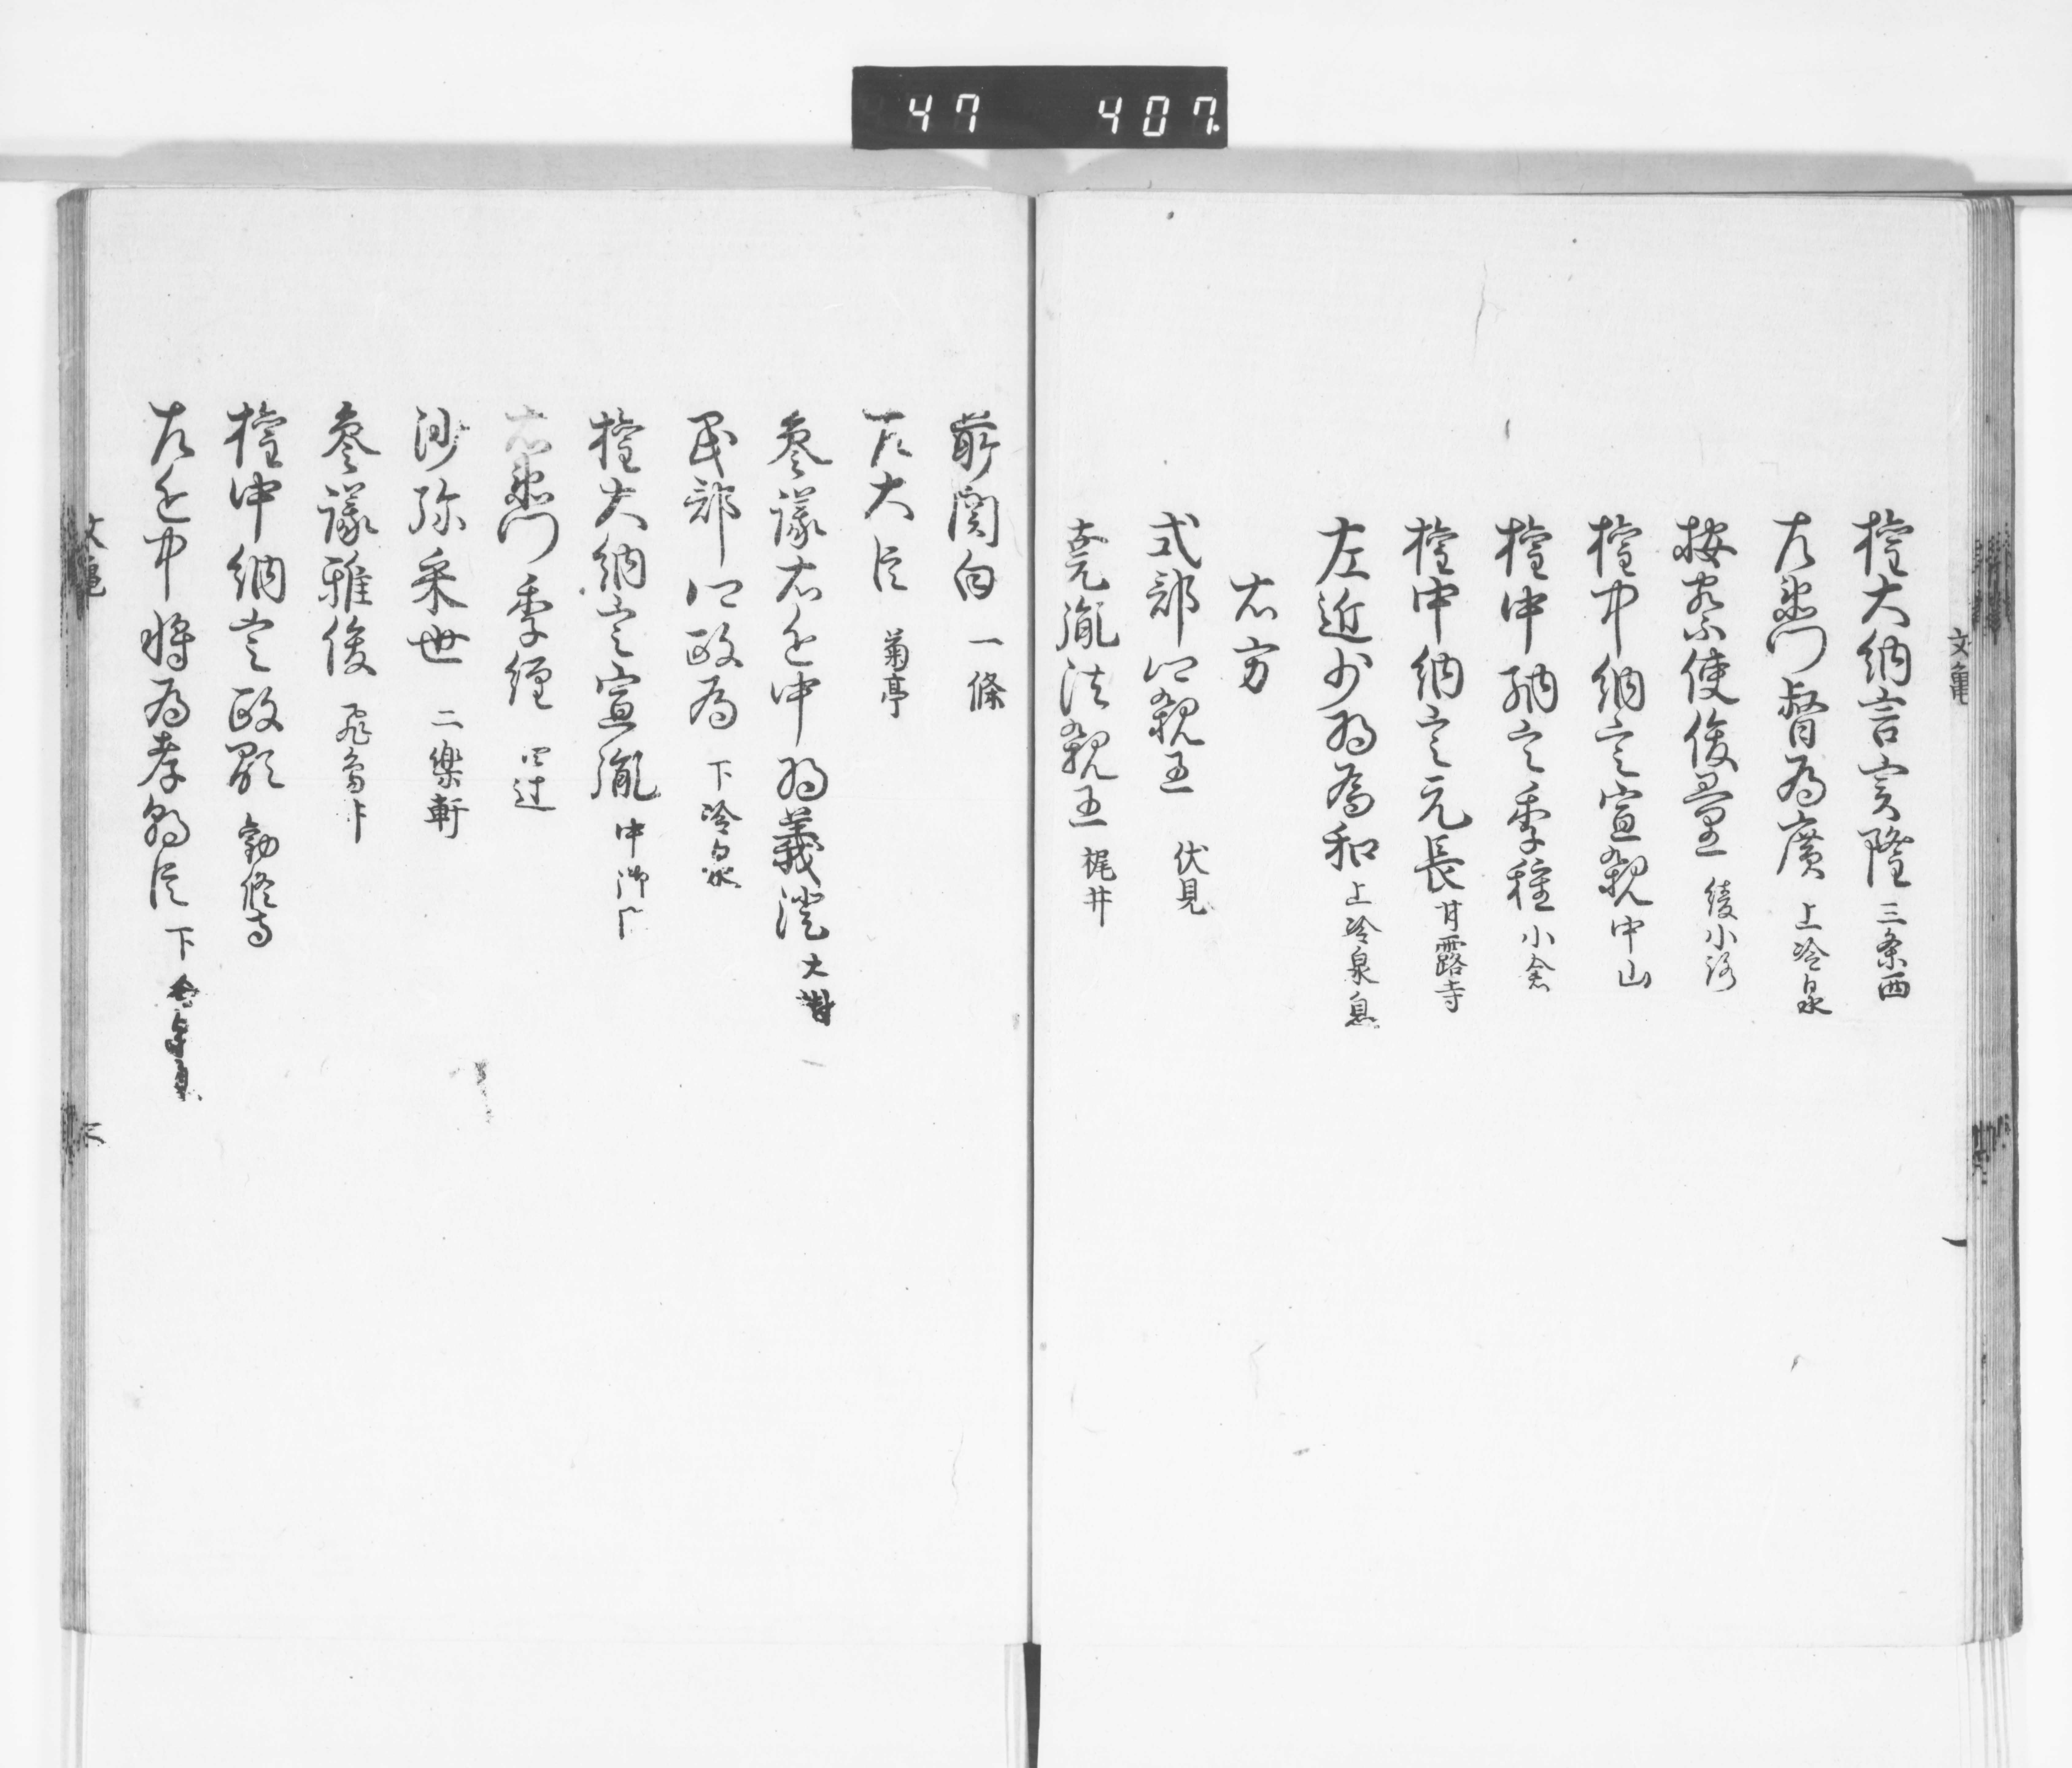 47 407.
文亀
一
権大納言実隆 三条西
左衛門督為廣 上冷泉
按察使俊量 綾小路
権中納言宣親 中山
権中納言季種 小倉
権中納言元長 甘露寺
左近少将為和 上冷泉息
右方
式部卿親王 伏見
堯胤法親王 梶井
前関白 一條
左大臣 菊亭
参議右近中将義澄 大樹
民部卿政為 下冷泉
権大納言宣胤 中御门
右衛門季經 四辻
沙弥宋世 二樂軒
参議雅俊 飛鳥井
権中納言政顕 勧修寺
左近中将為孝朝臣 下冷泉息
文亀